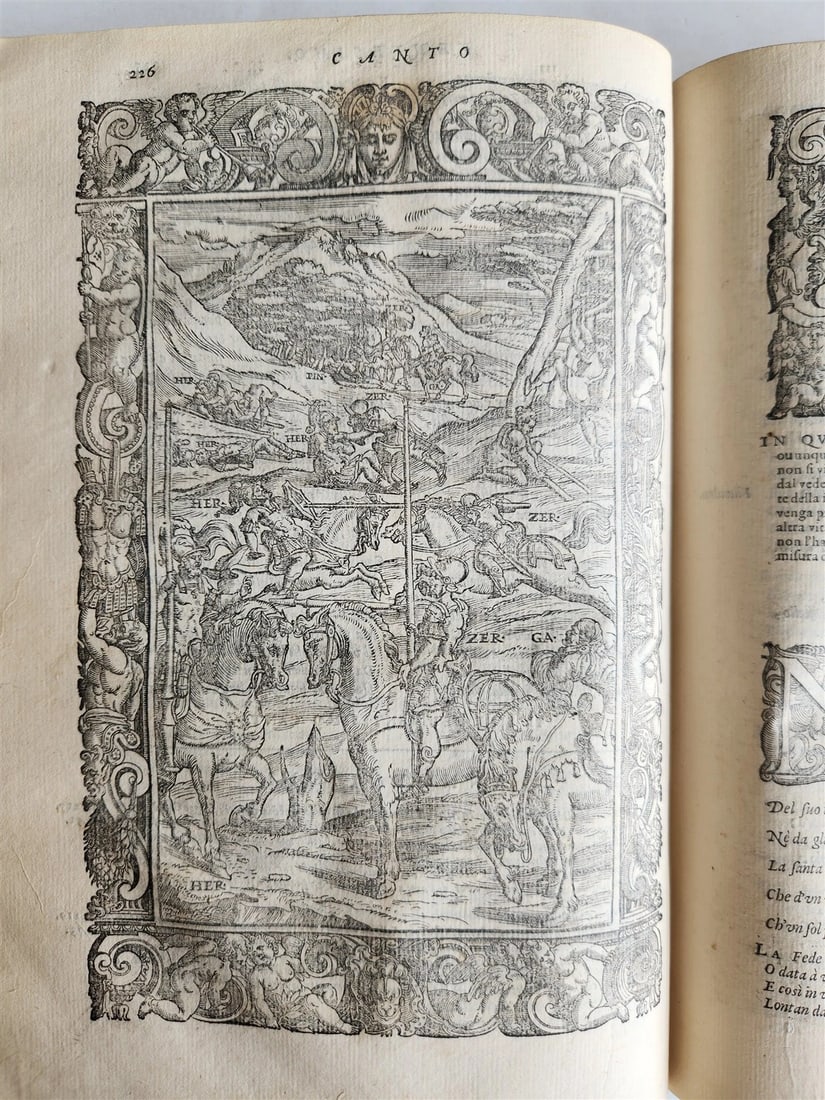 226
CANTO
HER
PIN
ZER
GA
HER
HER
HER
ZER
ZER
GA
HER
IN QV
ouunqu
non ſi vi
dal vede
te della i
venga p
altra vit
non l'ha
miſura c
N
Del ſuo
Nè da gl
La ſanta
Che d'vn
Ch'vn ſol
LA Fede
O data à
E così in v
Lontan da